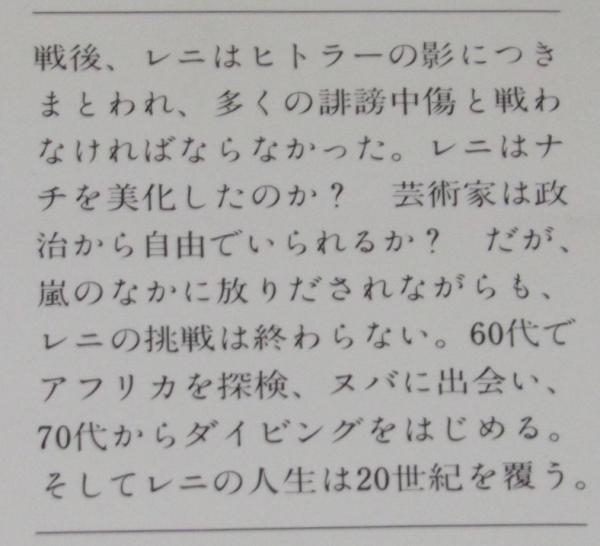 戦後、レニはヒトラーの影につき
まとわれ、多くの誹謗中傷と戦わ
なければならなかった。レニはナ
チを美化したのか？　芸術家は政
治から自由でいられるか？　だが、
嵐のなかに放りだされながらも、
レニの挑戦は終わらない。60代で
アフリカを探検、ヌバに出会い、
70代からダイビングをはじめる。
そしてレニの人生は20世紀を覆う。